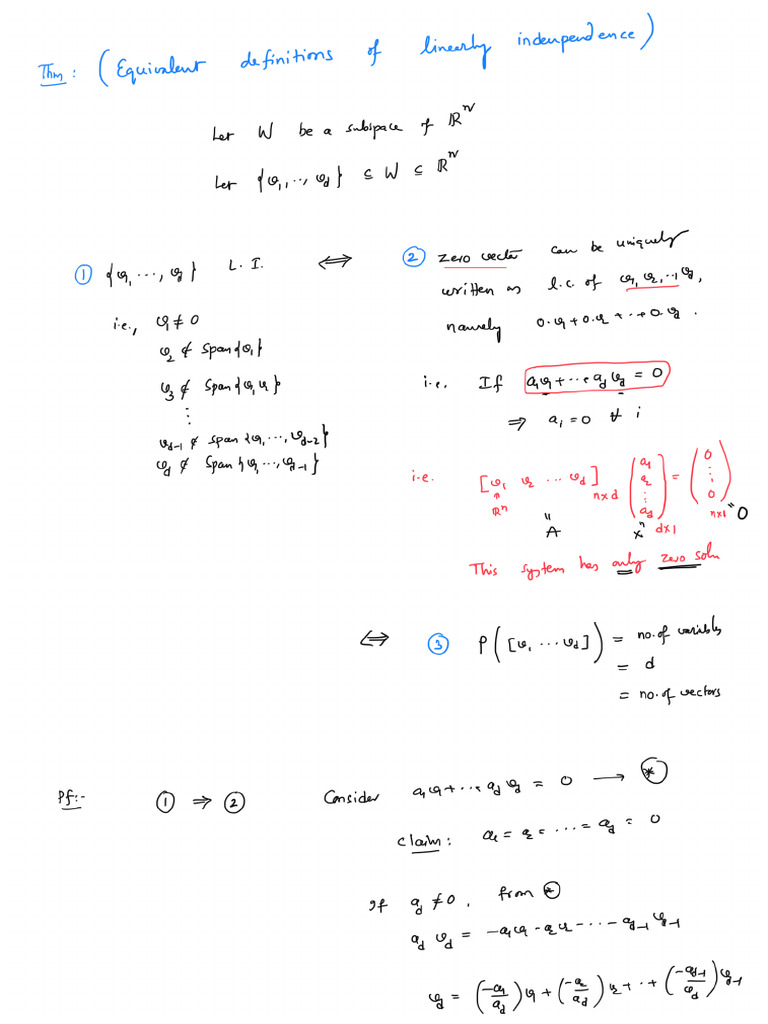 Thm: (Equivalent definitions of linearly indenupendence)
Let W be a subspace of ℝⁿ
Let {v₁, .., v_d} ⊆ W ⊆ ℝⁿ
① {v₁, ..., v_d} L.I. ⟺ ② Zero vector can be uniquely
written as l.c. of v₁, v₂, .., v_d,
namely 0.v₁ + 0.v₂ + ... + 0.v_d.
i.e., v₁ ≠ 0
v₂ ∉ span{v₁}
v₃ ∉ span{v₁, v₂}
⋮
v_{d-1} ∉ span{v₁, ..., v_{d-2}}
v_d ∉ span{v₁, ..., v_{d-1}}
i.e. If a₁v₁ + ... + a_d v_d = 0
⇒ a_i = 0 ∀ i
i.e. [v₁ v₂ ... v_d]_{n×d} (a₁ a₂ ⋮ a_d)_{d×1} = (0 ⋮ 0)_{n×1} " 0
ℝⁿ " A x "
This system has only zero soln
⟺ ③ ρ([v₁ ... v_d]) = no. of variables
= d
= no. of vectors
Pf:- ① ⇒ ② Consider a₁v₁ + ... + a_d v_d = 0 ⟶ ⊛
Claim: a₁ = a₂ = ... = a_d = 0
If a_d ≠ 0, from ⊛
a_d v_d = -a₁v₁ - a₂v₂ - ... - a_{d-1} v_{d-1}
v_d = (-a₁/a_d) v₁ + (-a₂/a_d) v₂ + .. + (-a_{d-1}/v_d) v_{d-1}